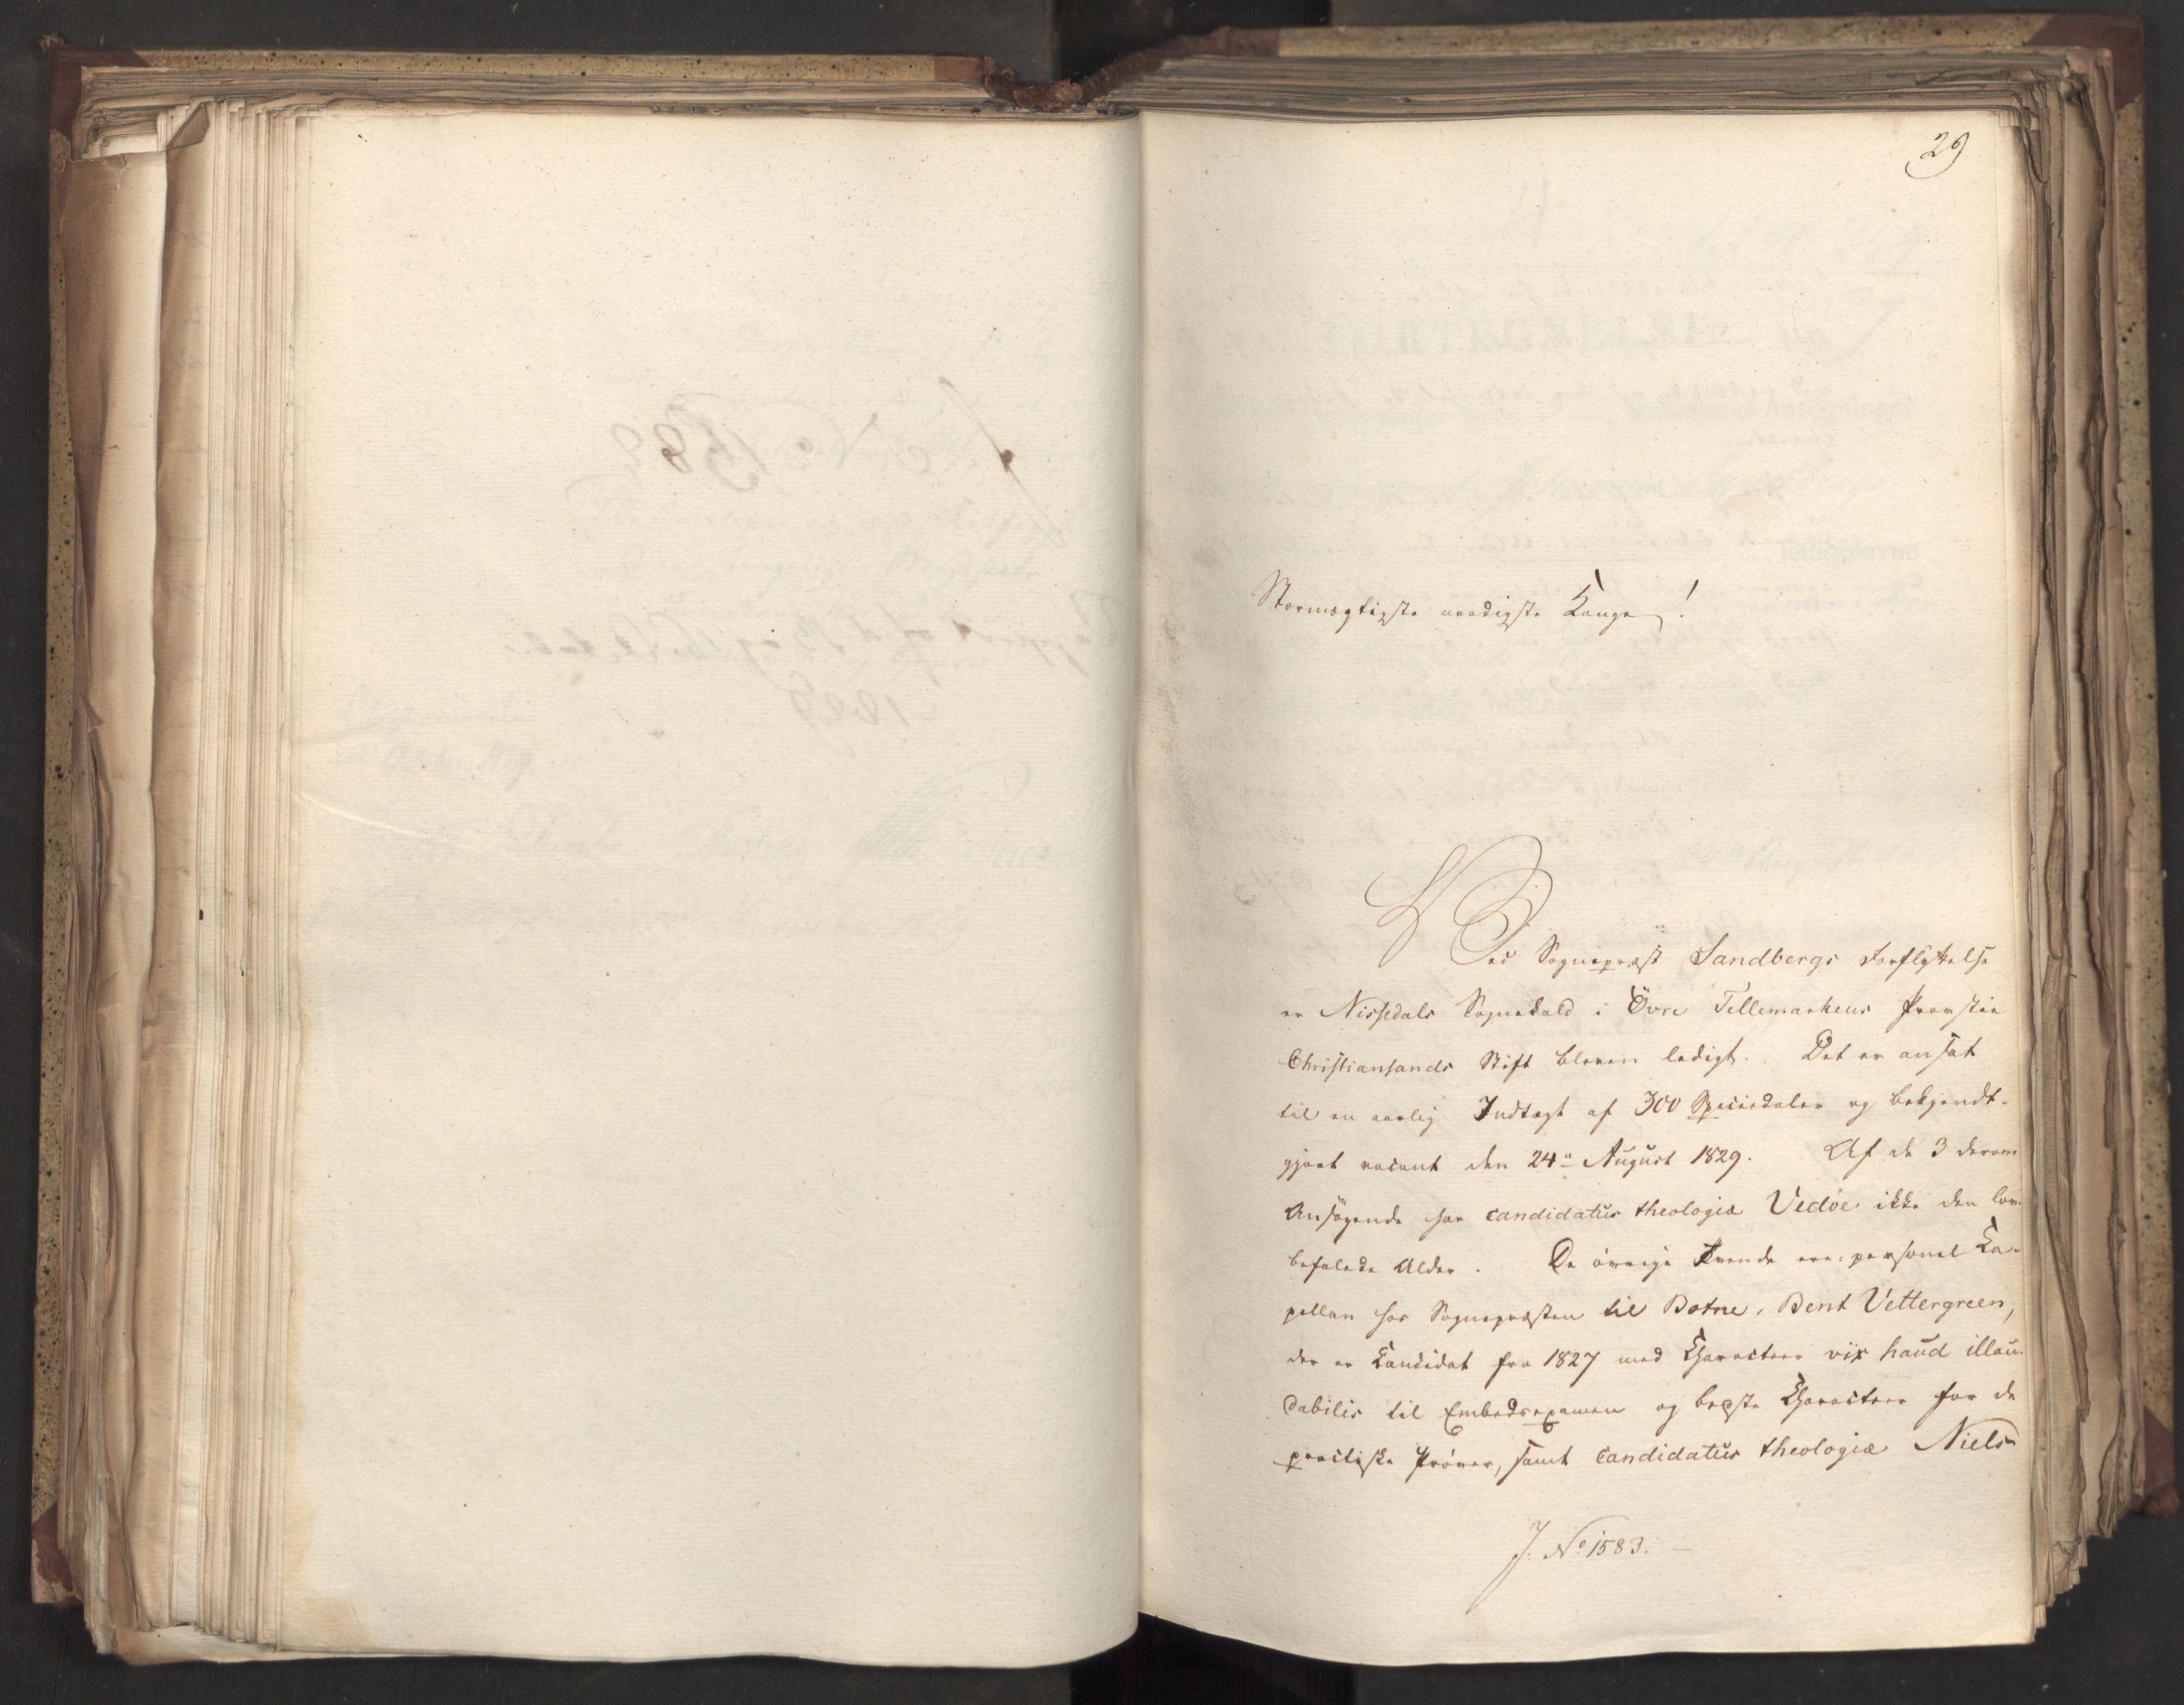 29
Stormægtigste naadigste Konge!
Ved Sognepræst Sandbergs Forflyttelse
er Nissedals Sognekald i Övre Tellemarkens Provstie
Christiansands Stift bleven ledigt. Det er ansat
til en aarlig Indtægt af 300 Speciedaler og bekjendt-
gjort vacant den 24de August 1829. Af de 3 derom
Ansøgende har candidatus theologiæ Vedöe ikke den lov-
befalede Alder. De övrige Tvende ere: personel Ca-
pellan hos Sognepræsten til Botne, Bent Vettergreen,
der er Candidat fra 1827 med Charakteer vix haud illau-
dabilis til Embedsexamen og bedste Charakteer for de
practiske Pröver, samt candidatus theologiæ Niels
J. No 1583.